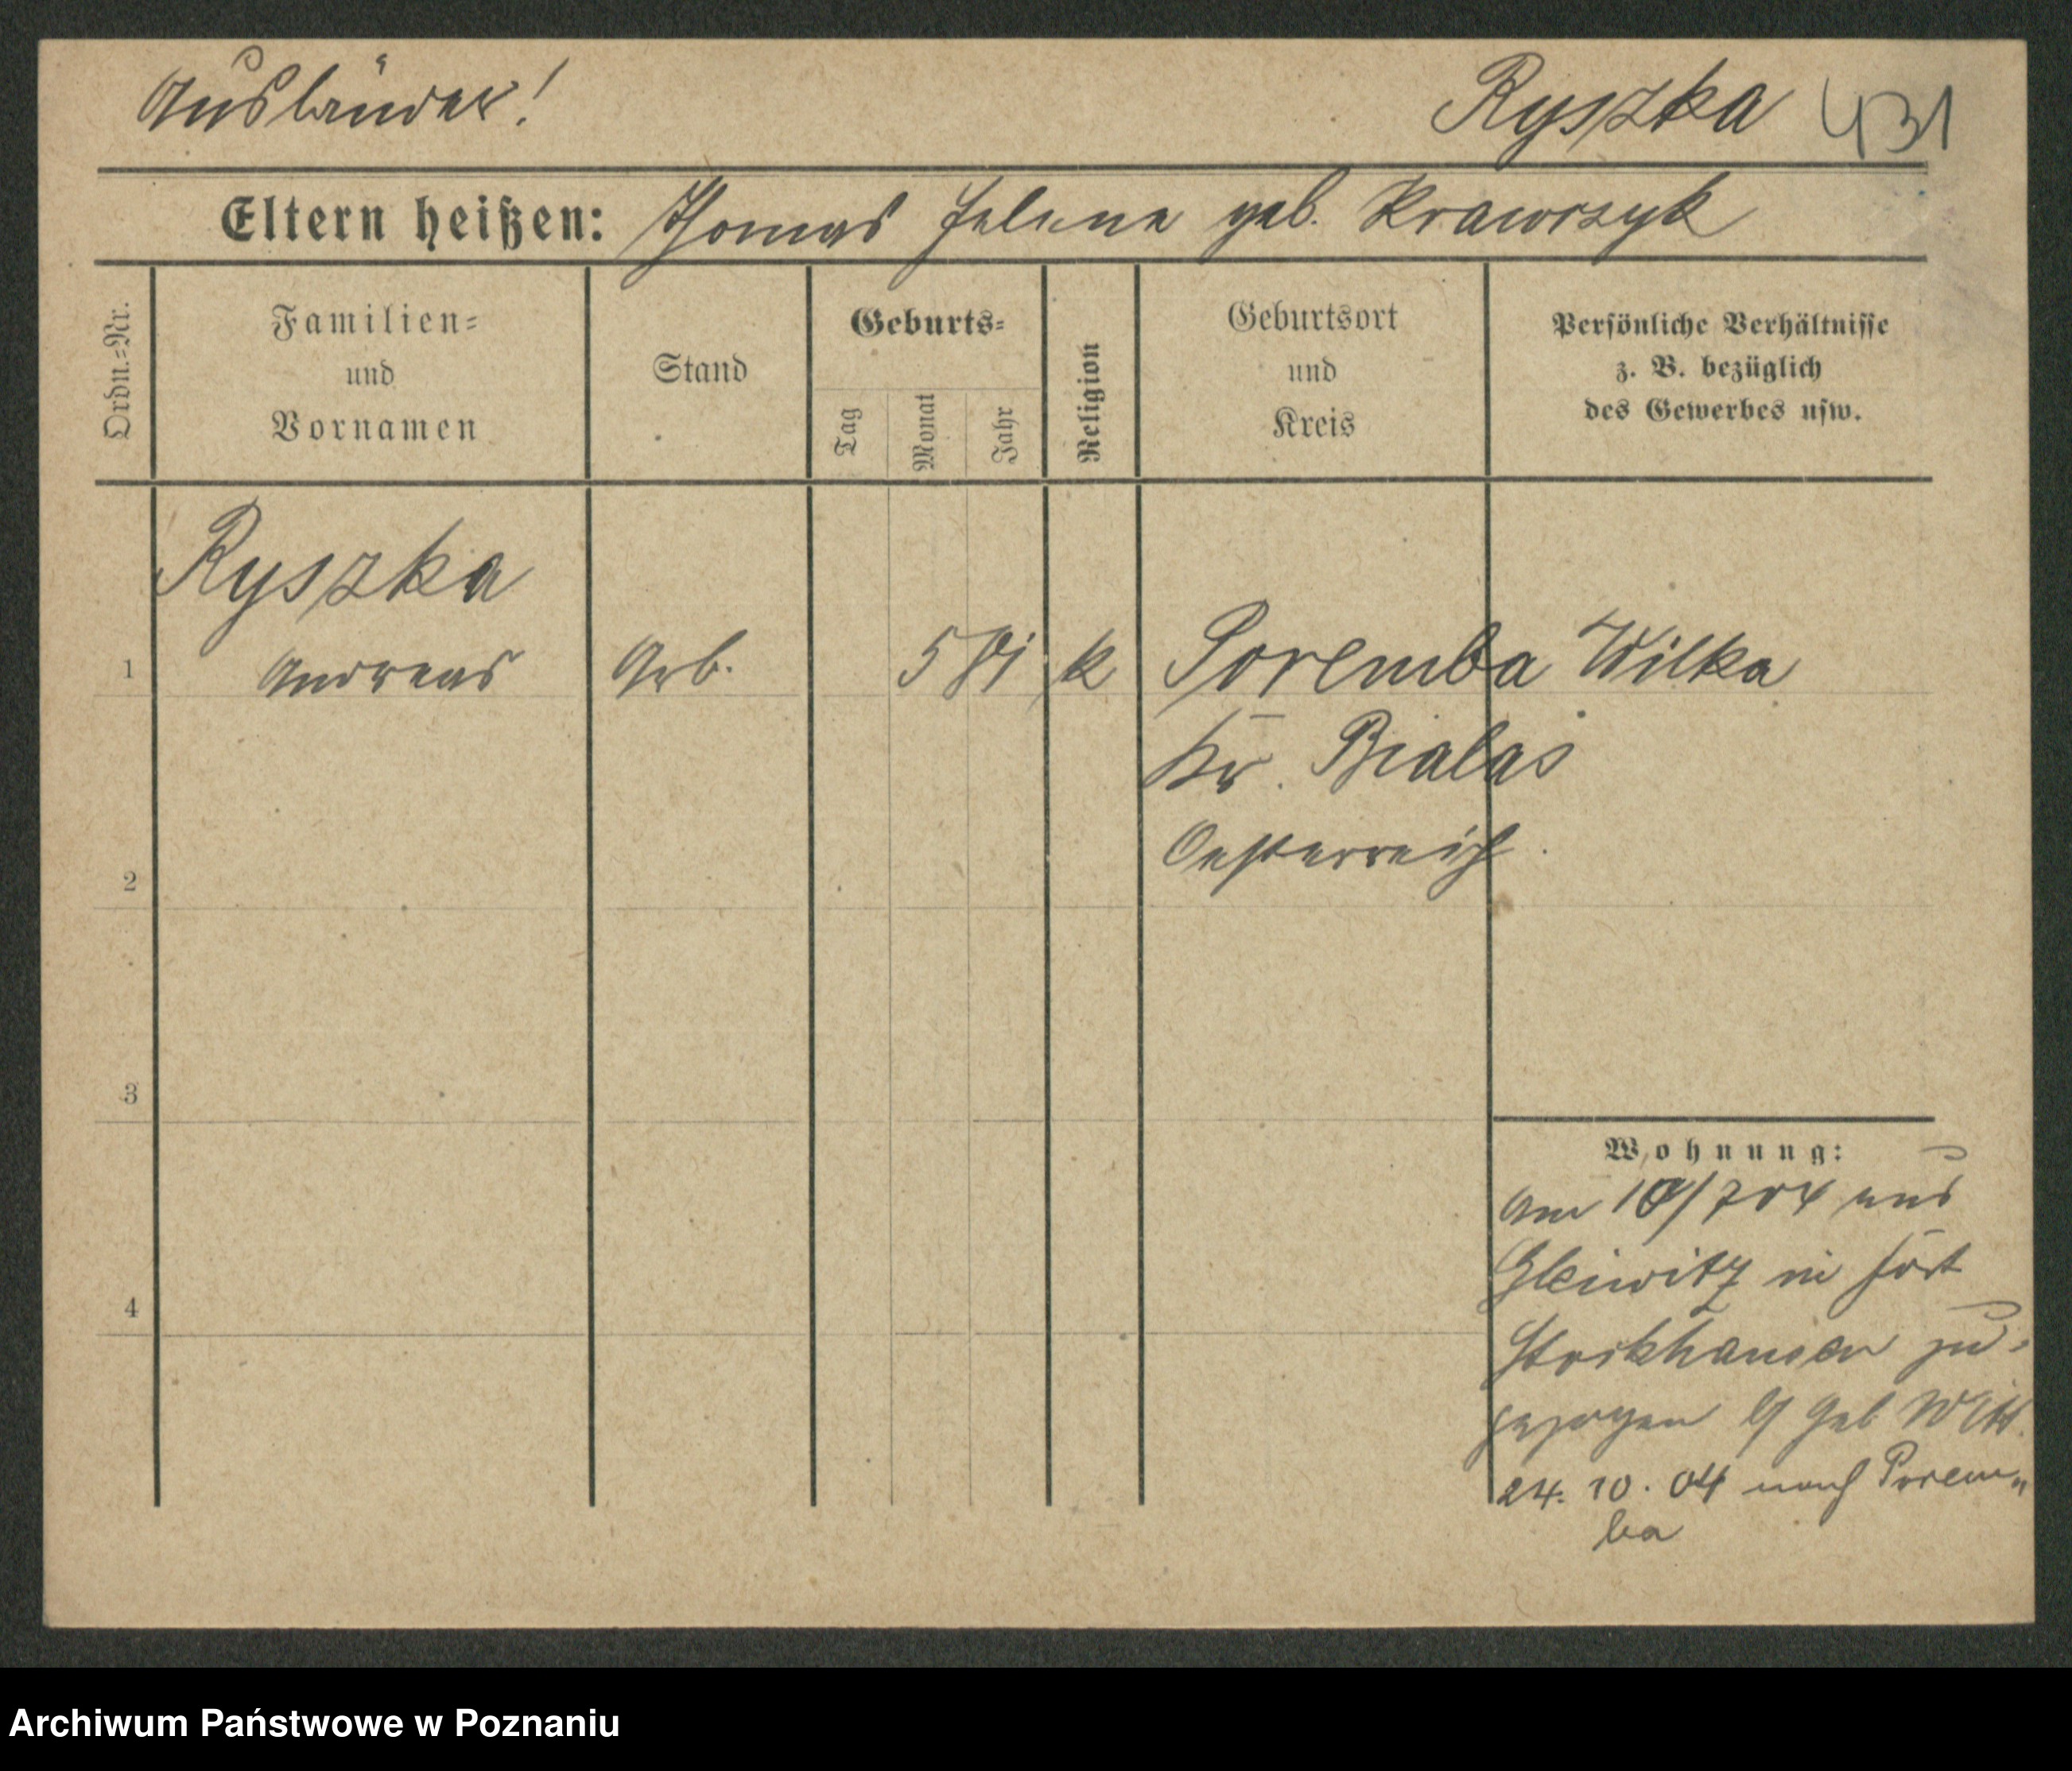 Ausländer! Ryszka 431
Eltern heißen: Thomas Helene geb. Krawczyk
Ordn.=Nr.
Familien=
und
Vornamen
Stand
Geburts=
Tag
Monat
Jahr
Religion
Geburtsort
und
Kreis
Persönliche Verhältnisse
z. B. bezüglich
des Gewerbes usw.
Ryszka
1 Andreas Arb. k Poremba Wilka
Kr. Bialas
Oesterreich.
2
3
4
Wohnung:
Am 704 aus
Gleiwitz in Fort
zu=
gezogen
24. 10. 04 nach Porem=
ba
Archiwum Państwowe w Poznaniu